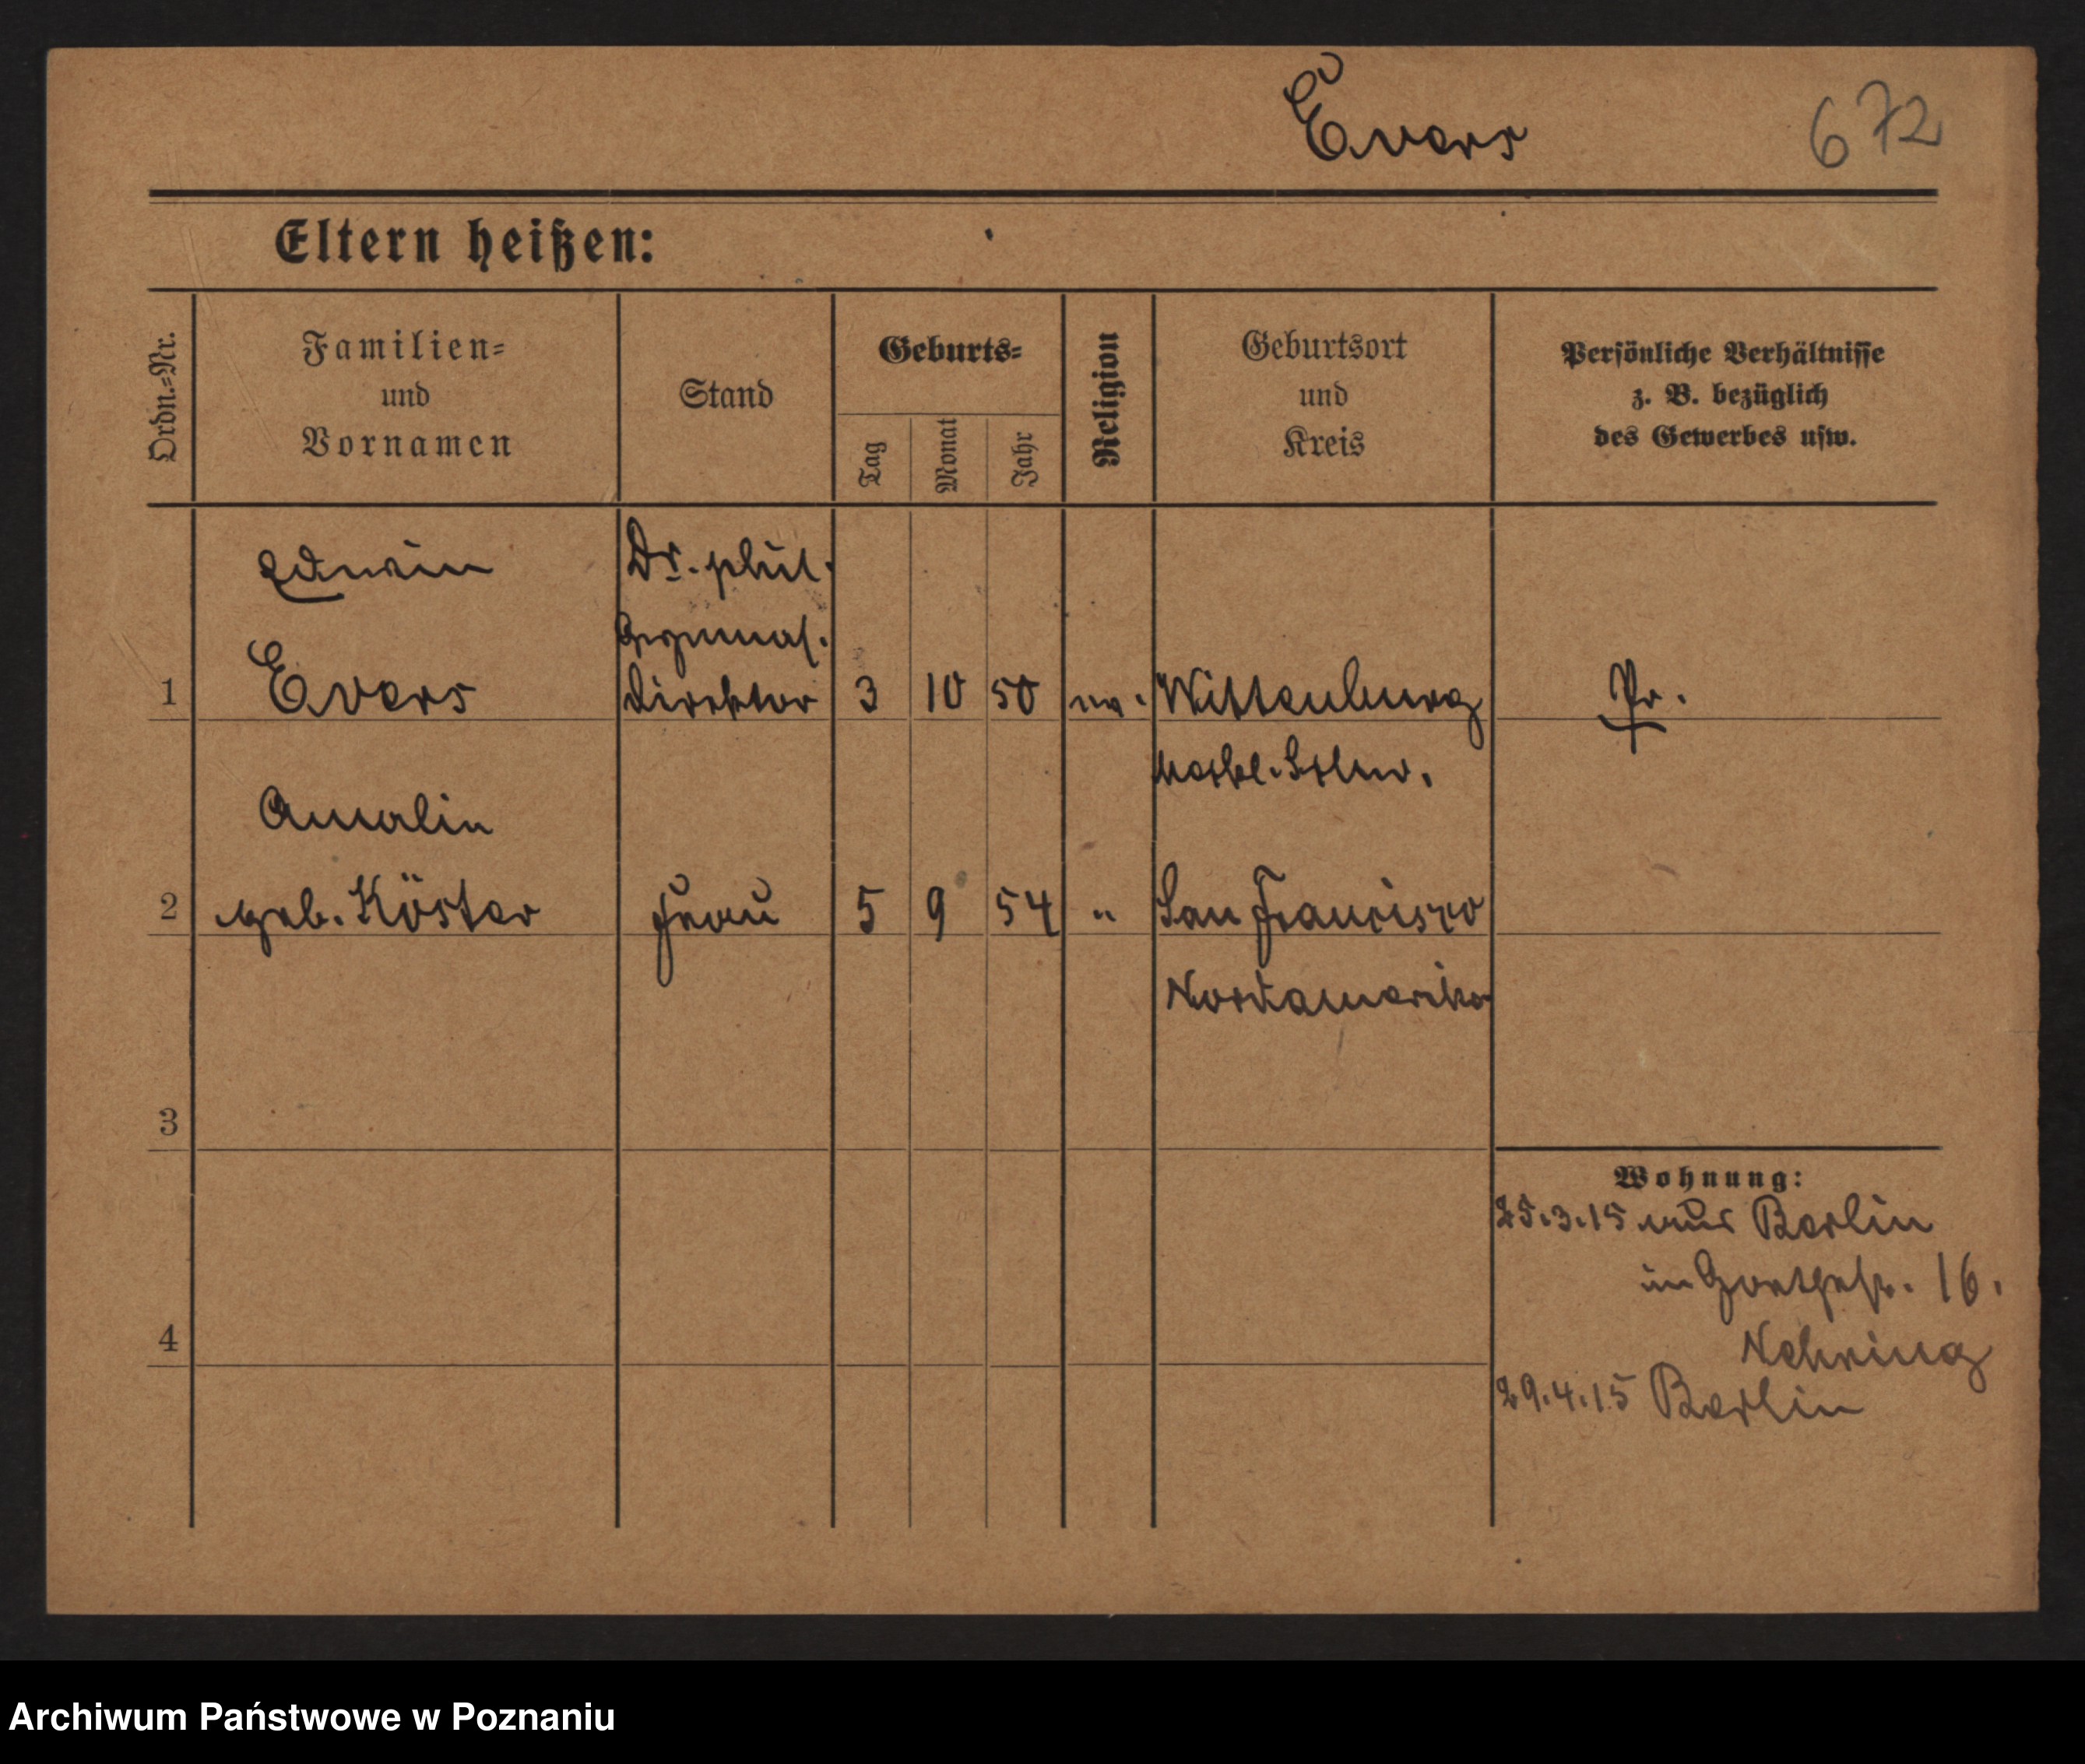 Evers
672
Eltern heißen:
Ordn.-Nr.
Familien-
und
Vornamen
Stand
Geburts-
Tag
Monat
Jahr
Religion
Geburtsort
und
Kreis
Persönliche Verhältnisse
z. B. bezüglich
des Gewerbes usw.
Edwin
Dr. phil.
Gymnas.
1 Evers Direktor 3 10 50 ev. Wittenburg Pr.
Meckl. Schw.
Amalie
2 geb. Köster Frau 5 9 54 " San Francisco
Nordamerika
3
Wohnung:
25.3.15 aus Berlin
in Goethestr. 16.
4
Nehring
29.4.15 Berlin
Archiwum Państwowe w Poznaniu